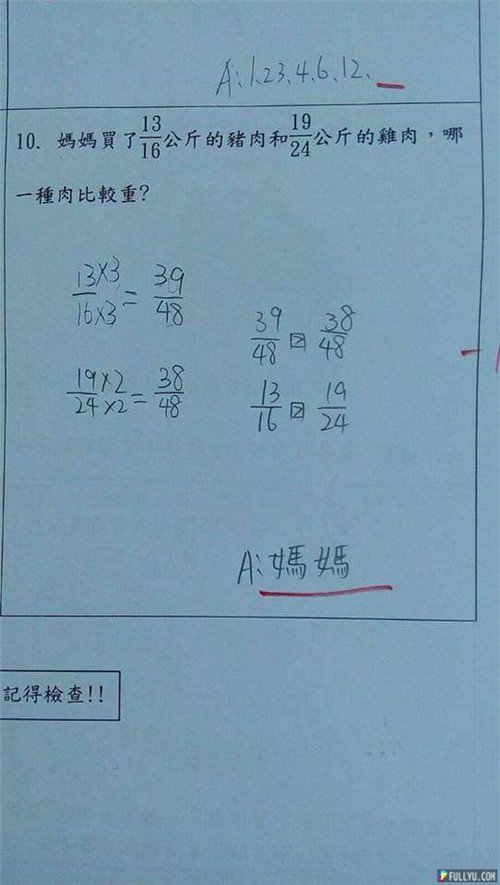 A:1、23、4、6、12、
10. 媽媽買了13/16公斤的豬肉和19/24公斤的雞肉，哪
一種肉比較重?
13×3/16×3=39/48
39/48>38/48
19×2/24×2=38/48
13/16>19/24
A:媽媽
記得檢查!!
FULLYU.COM